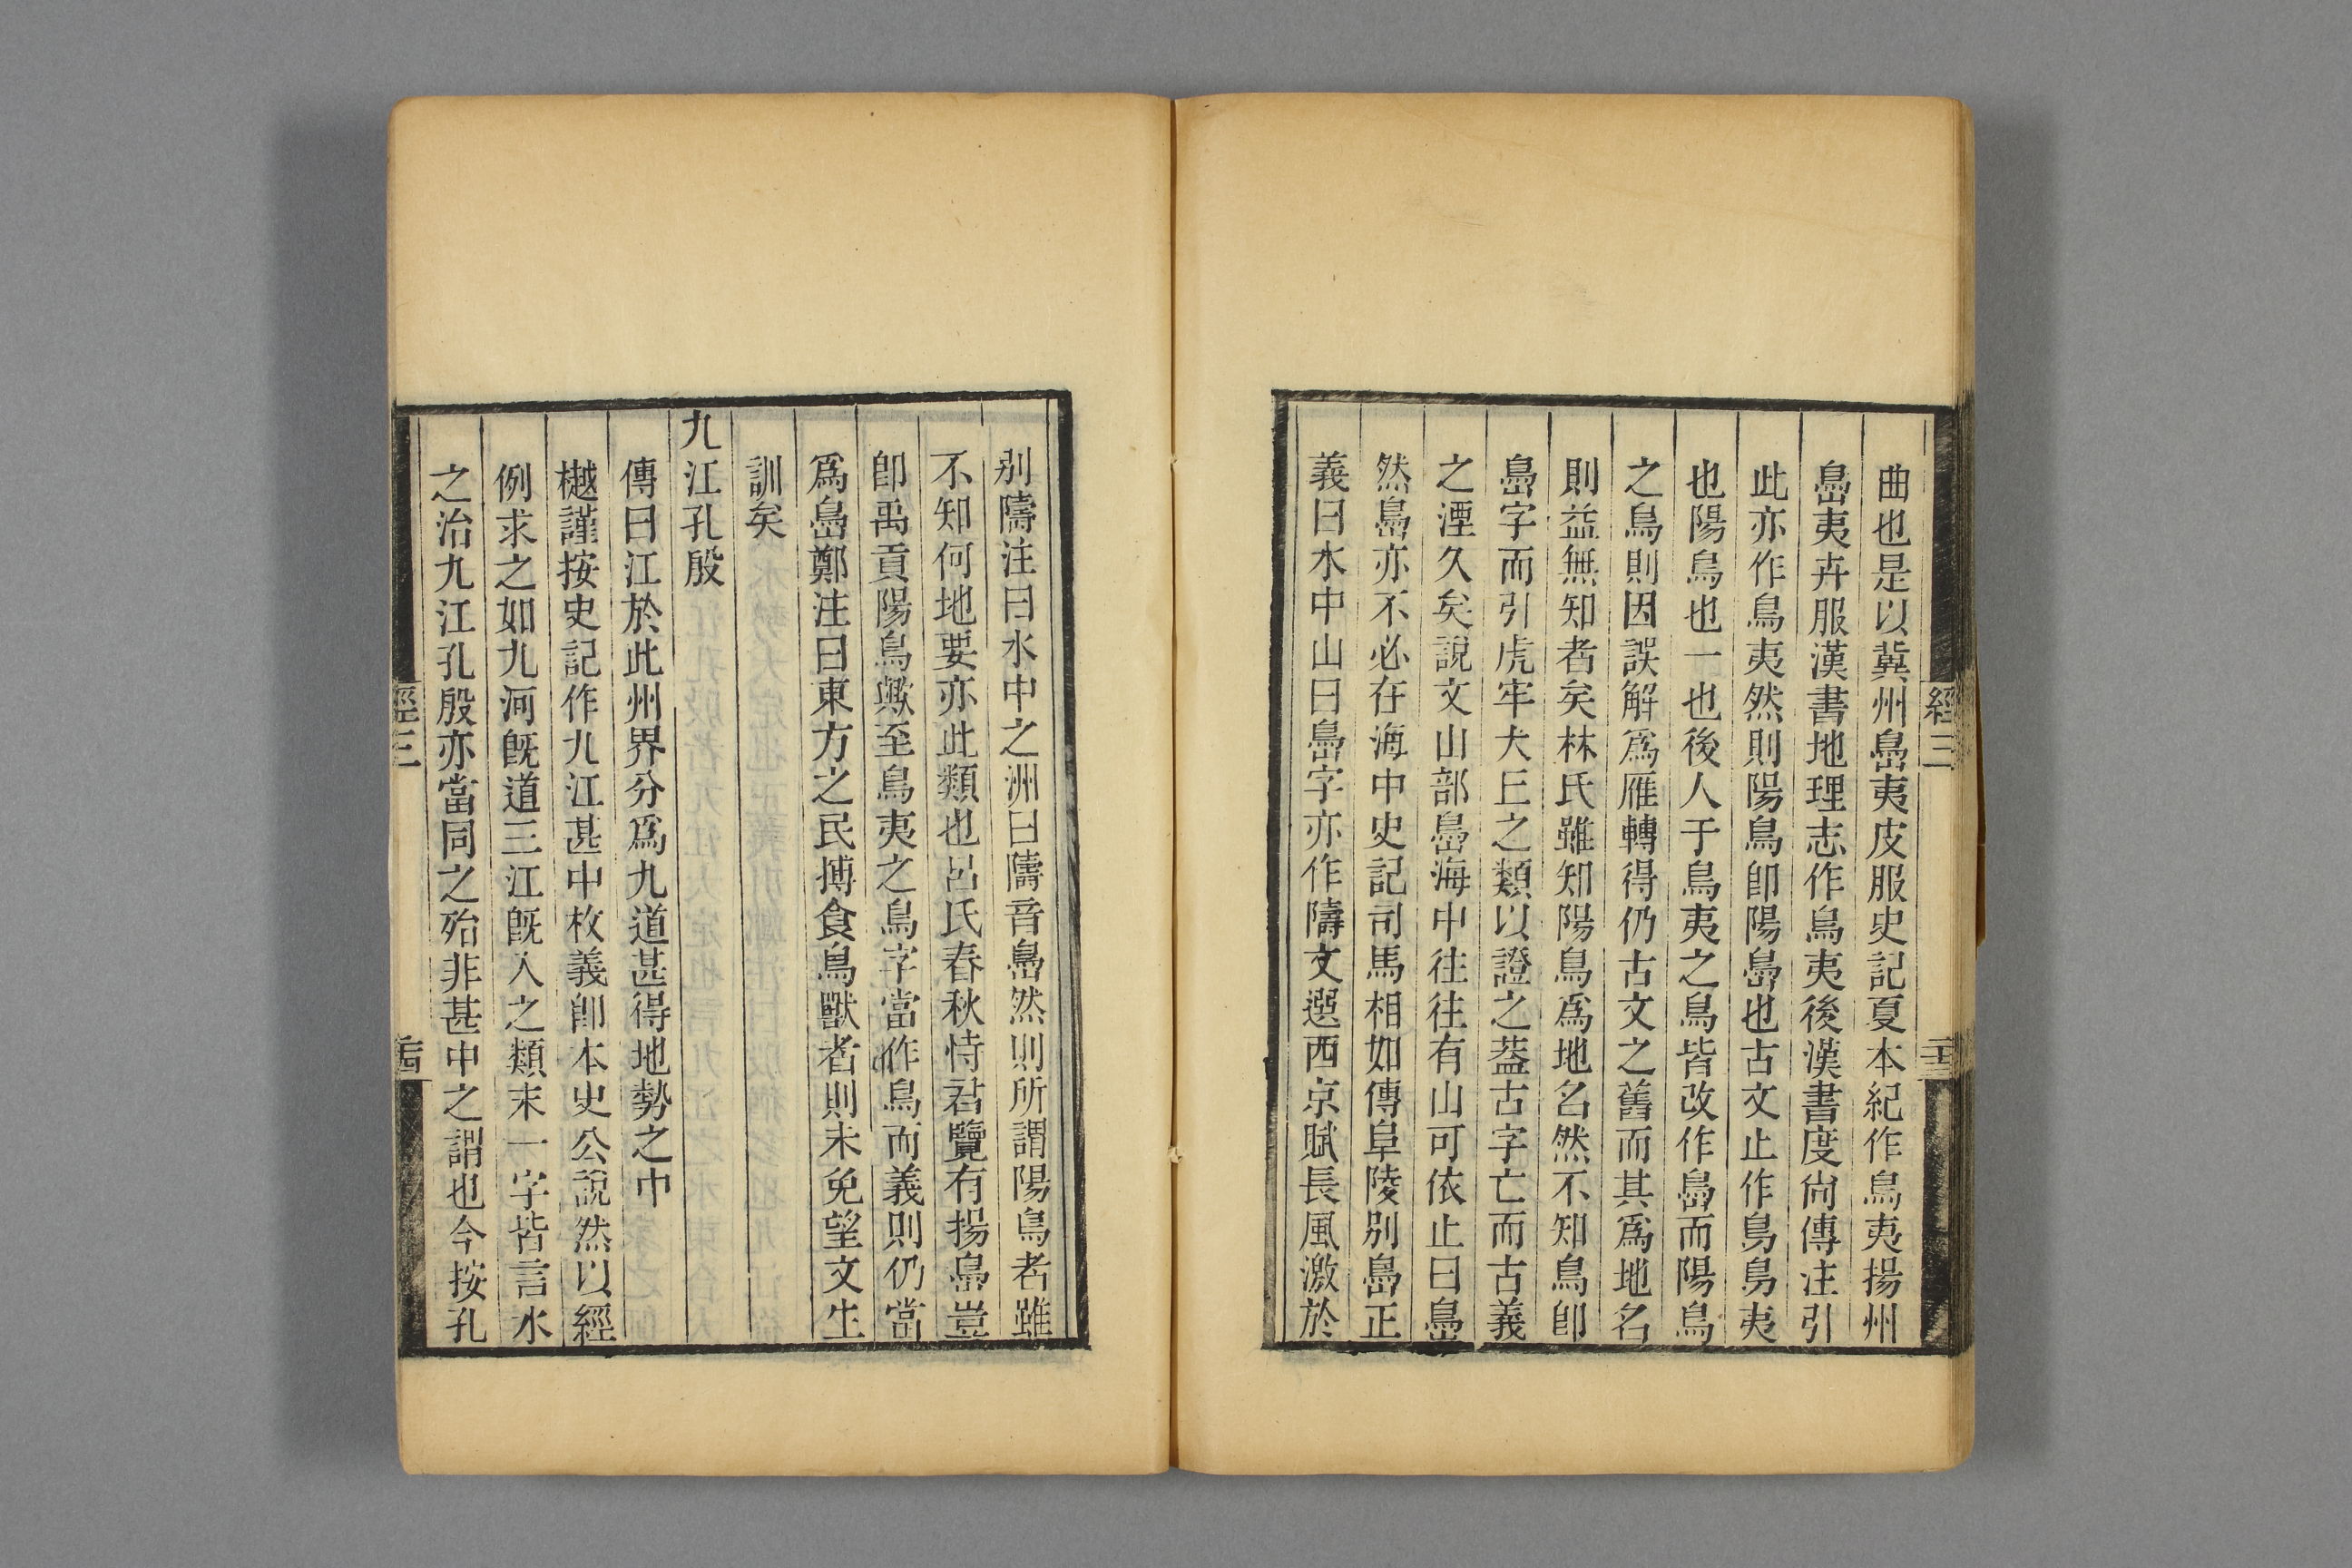 曲也是以冀州島夷皮服史記夏本紀作鳥夷揚州
島夷卉服漢書地理志作鳥夷後漢書度尙傳注引
此亦作鳥夷然則陽鳥卽陽島也古文止作鳥鳥夷
也陽鳥也一也後人于鳥夷之鳥皆改作島而陽鳥
之鳥則因誤解爲雁轉得仍古文之舊而其爲地名
則益無知者矣林氏雖知陽鳥爲地名然不知鳥卽
島字而引虎牢犬丘之類以證之葢古字亡而古義
之湮久矣說文山部島海中往往有山可依止曰島
然島亦不必在海中史記司馬相如傳阜陵别島正
義曰水中山曰島字亦作隯文選西京賦長風激於
經三
二十三
别隯注曰水中之洲曰隯音島然則所謂陽鳥者雖
不知何地要亦此類也呂氏春秋恃君覽有揚島豈
卽禹貢陽鳥歟至鳥夷之鳥字當作鳥而義則仍當
爲島鄭注曰東方之民搏食鳥獸者則未免望文生
訓矣
九江孔殷
傳曰江於此州界分爲九道甚得地勢之中
樾謹按史記作九江甚中枚義卽本史公說然以經
例求之如九河旣道三江旣入之類末一字皆言水
之治九江孔殷亦當同之殆非甚中之謂也今按孔
經三
二十四